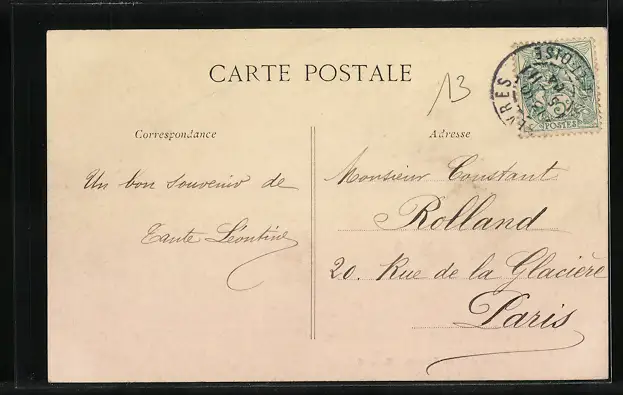 CARTE POSTALE
13
Correspondance
Adresse
Un bon souvenir de
Tante Léontine
Monsieur Constant
Rolland
20. Rue de la Glacière
Paris
5c
POSTES
ET-OISE